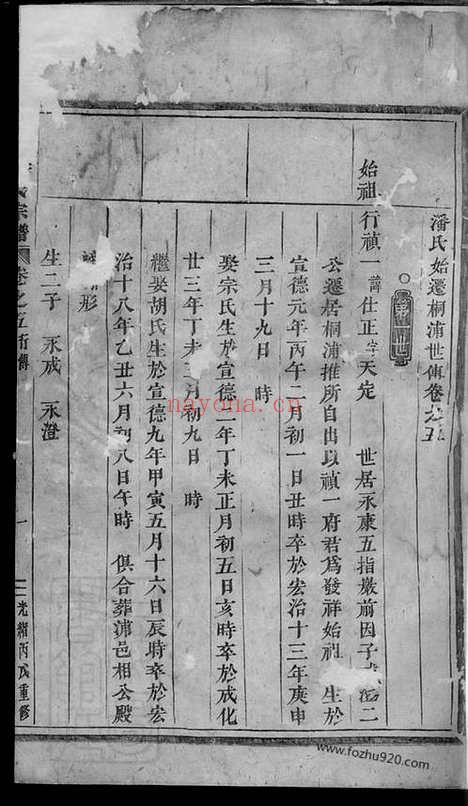 潘氏始遷桐浦世傳卷之五
第一世
始祖 行禎一 諱仕正字天定 世居永康五指巖前因子 二
公遷居桐浦推所自出以禎一府君為發祥始祖 生於
宣德元年丙午二月初一日丑時卒於宏治十三年庚申
三月十九日 時
娶宗氏生於宣德二年丁未正月初五日亥時卒於成化
廿三年丁未 月初九日 時
繼娶胡氏生於宣德九年甲寅五月十六日辰時卒於宏
治十八年乙丑六月初八日午時 俱合葬浦邑相公殿
形
生二子 永成 永澄
宗譜 卷之五行傳 一 光緒丙戌重修
nayona.cn
www.fozhu920.com